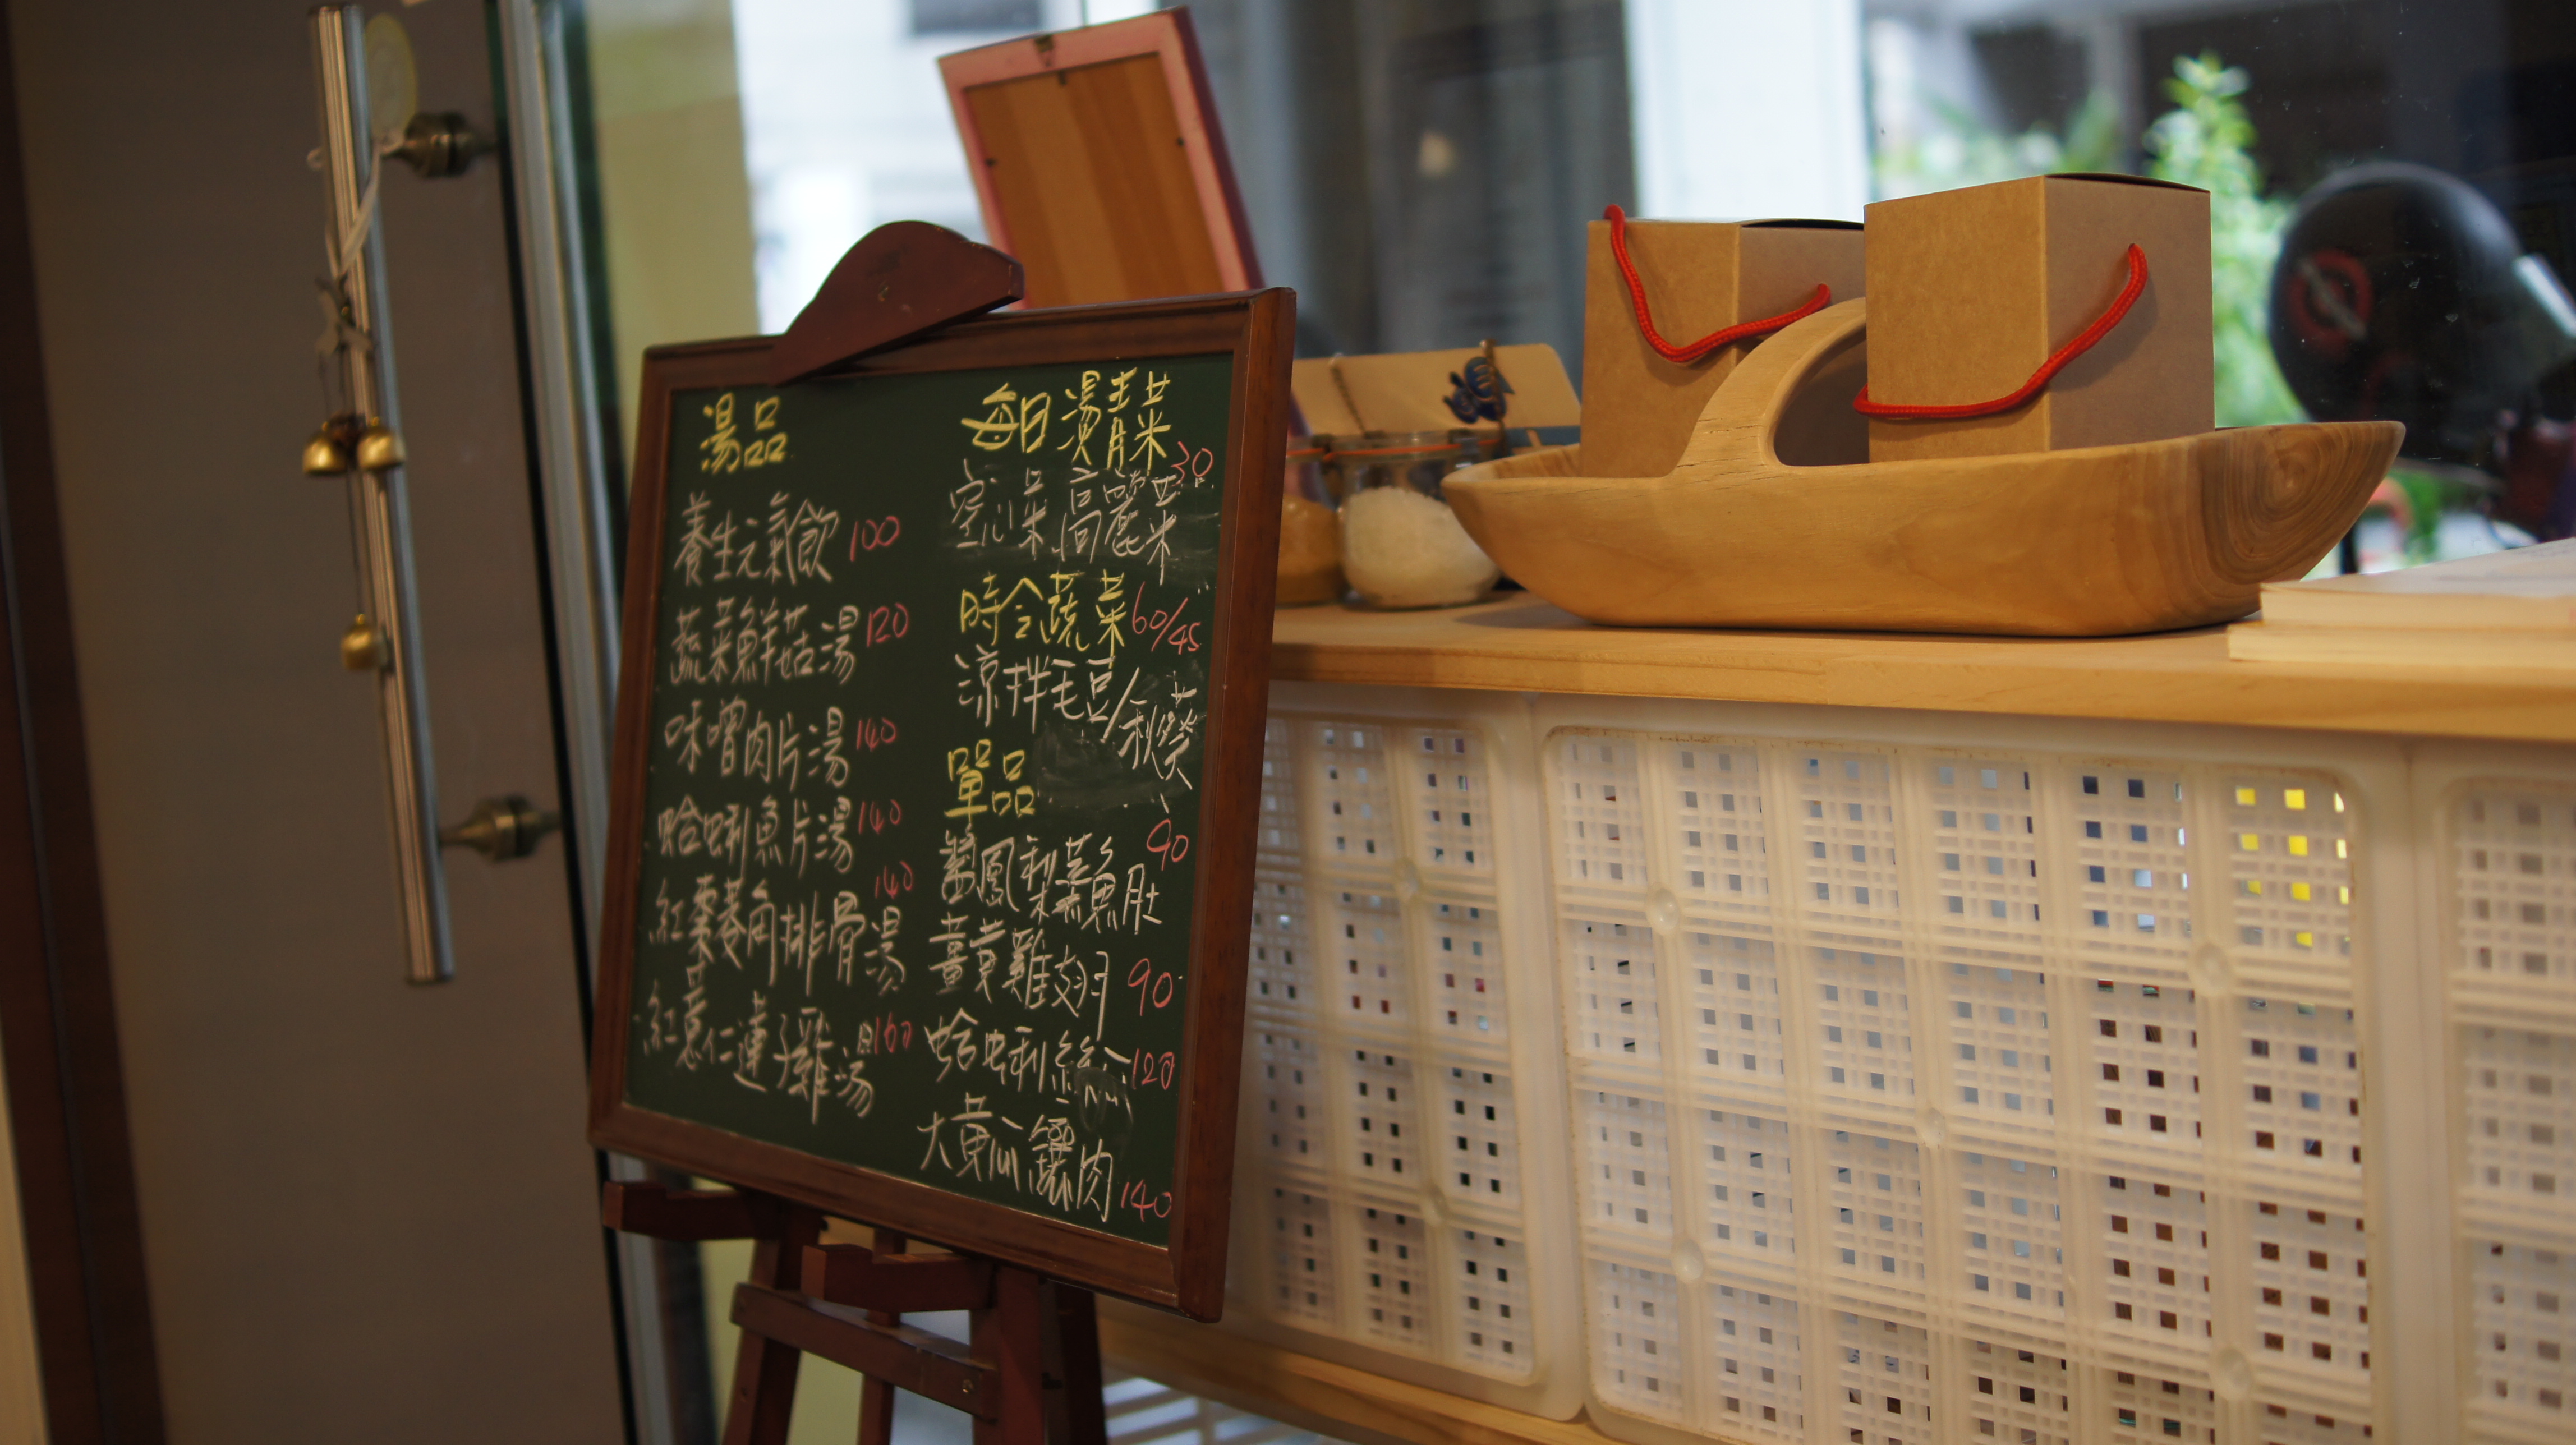 湯品
養生元氣飲 100
蔬菜鮮菇湯 120
味噌肉片湯 140
蛤蜊魚片湯 140
紅棗菱角排骨湯 140
紅薏仁蓮子雞湯 160
每日燙青菜 30
空心菜.高麗菜
時令蔬菜 60/45
涼拌毛豆/秋葵
單品
醬鳳梨蒸魚肚 90
薑黃雞翅 90
蛤蜊絲瓜 120
大黃瓜鑲肉 140